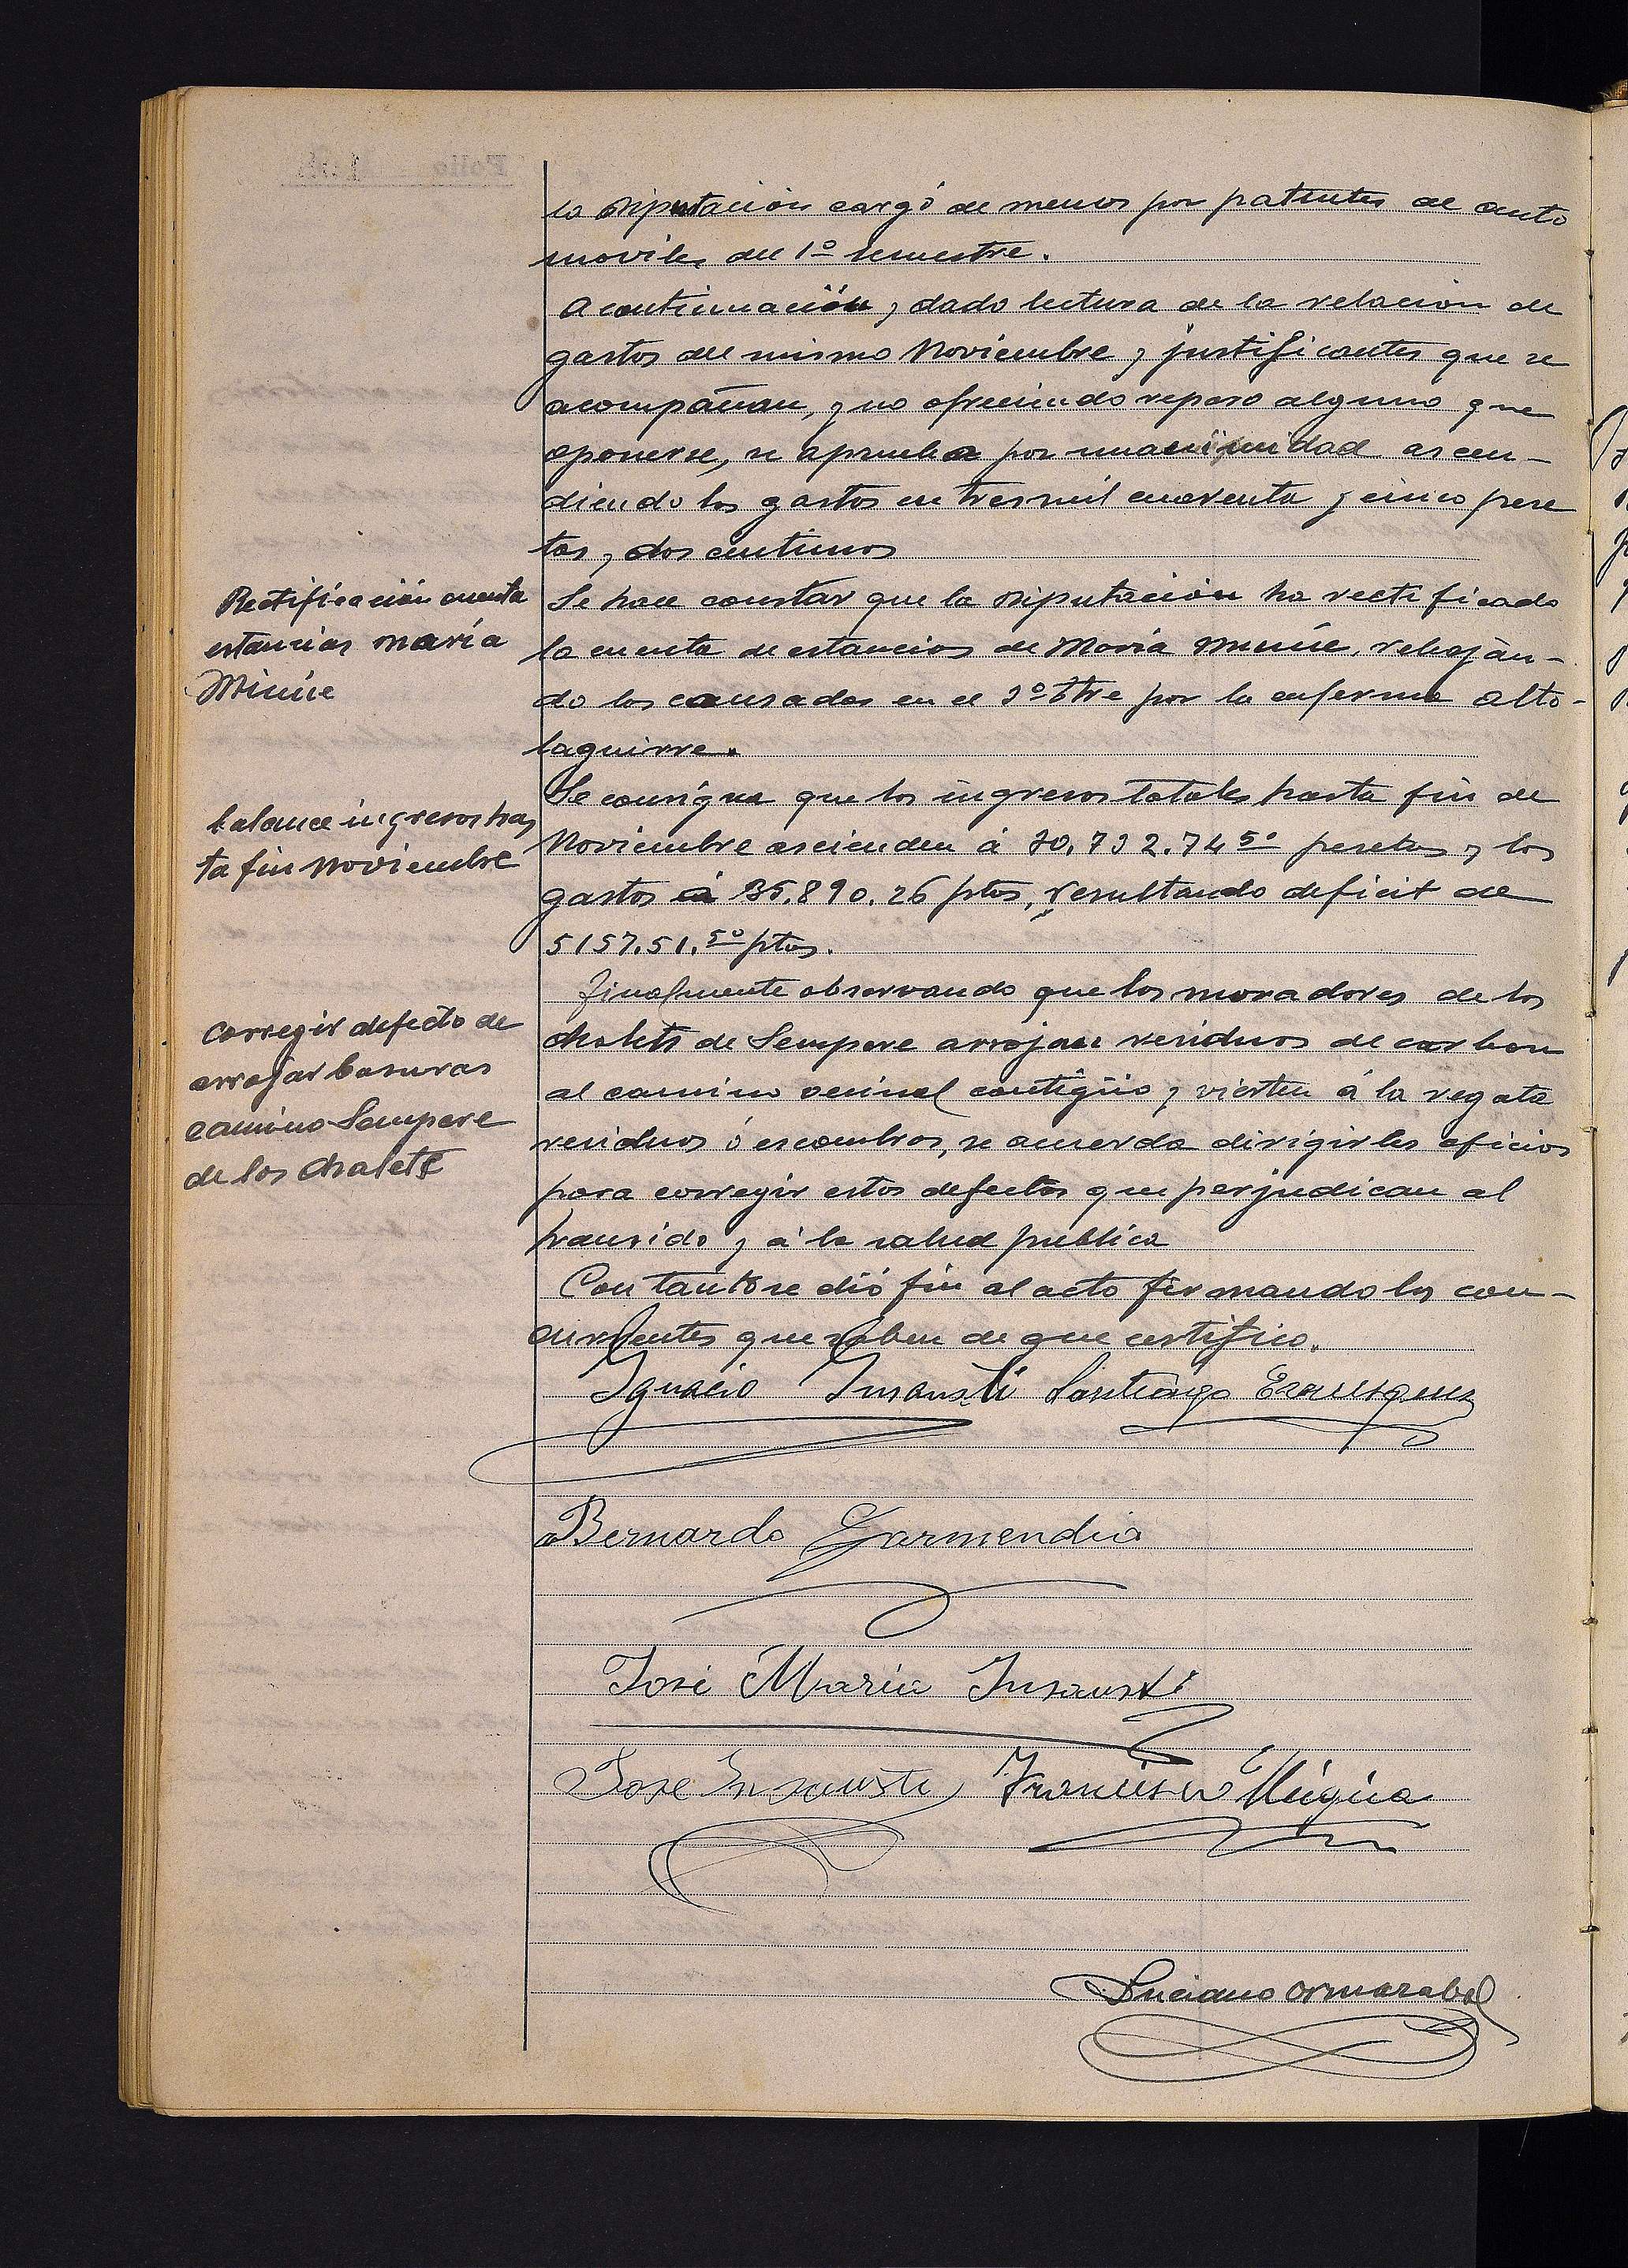 la Diputación cargó de menos por patentes de auto
moviles del 1º semestre.
A continuación, dado lectura de la relación de
gastos del mismo Noviembre y justificantes que se
acompañan, y no ofreciendo reparo alguno que
oponerse, se aprueba por unanimidad ascen-
diendo los gastos en tres mil cuarenta y cinco pese
tas, dos centimos
Rectificación cuenta
estancias María
Minúe
Se hace constar que la Diputación ha rectificado
la cuenta de estancias de María Minúe, rebaján-
do las causadas en el 3º tre por la enferma Alto-
laguirre.
balance ingresos has
ta fin Noviembre
Se consigna que los ingresos totales hasta fin de
Noviembre ascienden á 30.732.74 5º pesetas y los
gastos á 35.890.26 ptas, resultando deficit de
5157.51.5º ptas.
corregir defecto de
arrojar basuras
camino Sempere
de los chalets
Finalmente observando que los moradores de los
chalets de Sempere arrojan residuos de carbon
al camino vecinal contigüo y vierten á la regata
residuos ó escombros, se acuerda dirigirles oficios
para corregir estos defectos que perjudican al
transido y á la salud publica
Con tanto se dió fin al acto firmando los con-
currentes que saben de que certifico.
Ignacio Insausti Santiago
Bernardo Garmendia
José María Insausti
Jose Insausti Francisco Múgica
Luciano Ormazabal